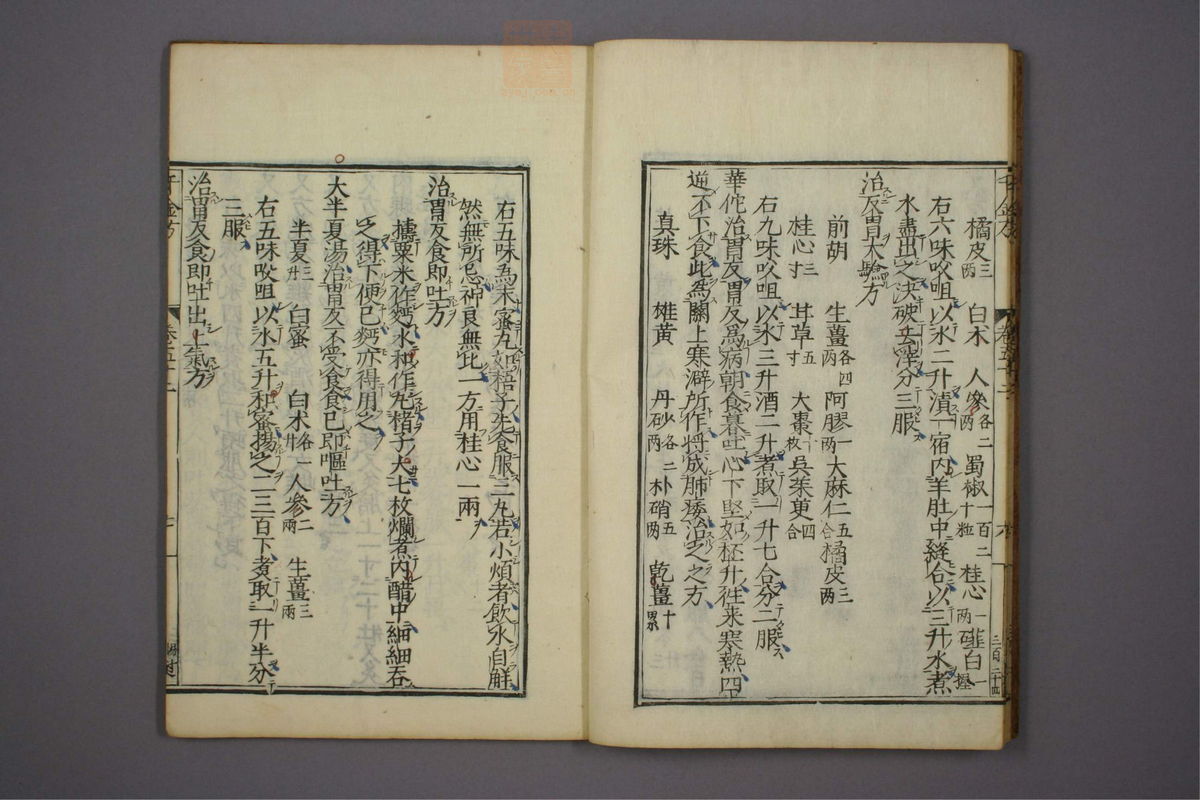 橘皮三兩 白朮 人參各二兩 蜀椒一百二十粒 桂心一兩 薤白一握
右六味㕮咀以水二升漬一宿內羊肚中縫合以三升水煮
水盡出之決破去滓分三服
治反胃大驗方
前胡 生薑各四兩 阿膠一兩 大麻仁五合 橘皮三兩
桂心三寸 甘草五寸 大棗十枚 吳茱萸四合
右九味㕮咀以水三升酒二升煮取一升七合分二服
華佗治胃反胃反爲病朝食暮吐心下堅如杯升往来寒熱四
逆不下食此為關上寒澼所作将成肺痿治之之方
真珠 雄黃 丹砂各二兩 朴硝五兩 乾薑十累
右五味為末蜜丸如梧子先食服三丸若小煩者飲水自解
然無所忌神良無比一方用桂心一兩
治胃反食即吐方
擣粟米作麵水和作丸楮子大七枚爛煮內醋中細細吞
之得下便已麪亦得用之
大半夏湯治胃反不受食食已即嘔吐方
半夏三升 白蜜 白朮各一升 人參二兩 生薑三兩
右五味㕮咀以水五升和蜜揚之二三百下煮取一升半分
三服
治胃反食即吐出上氣方